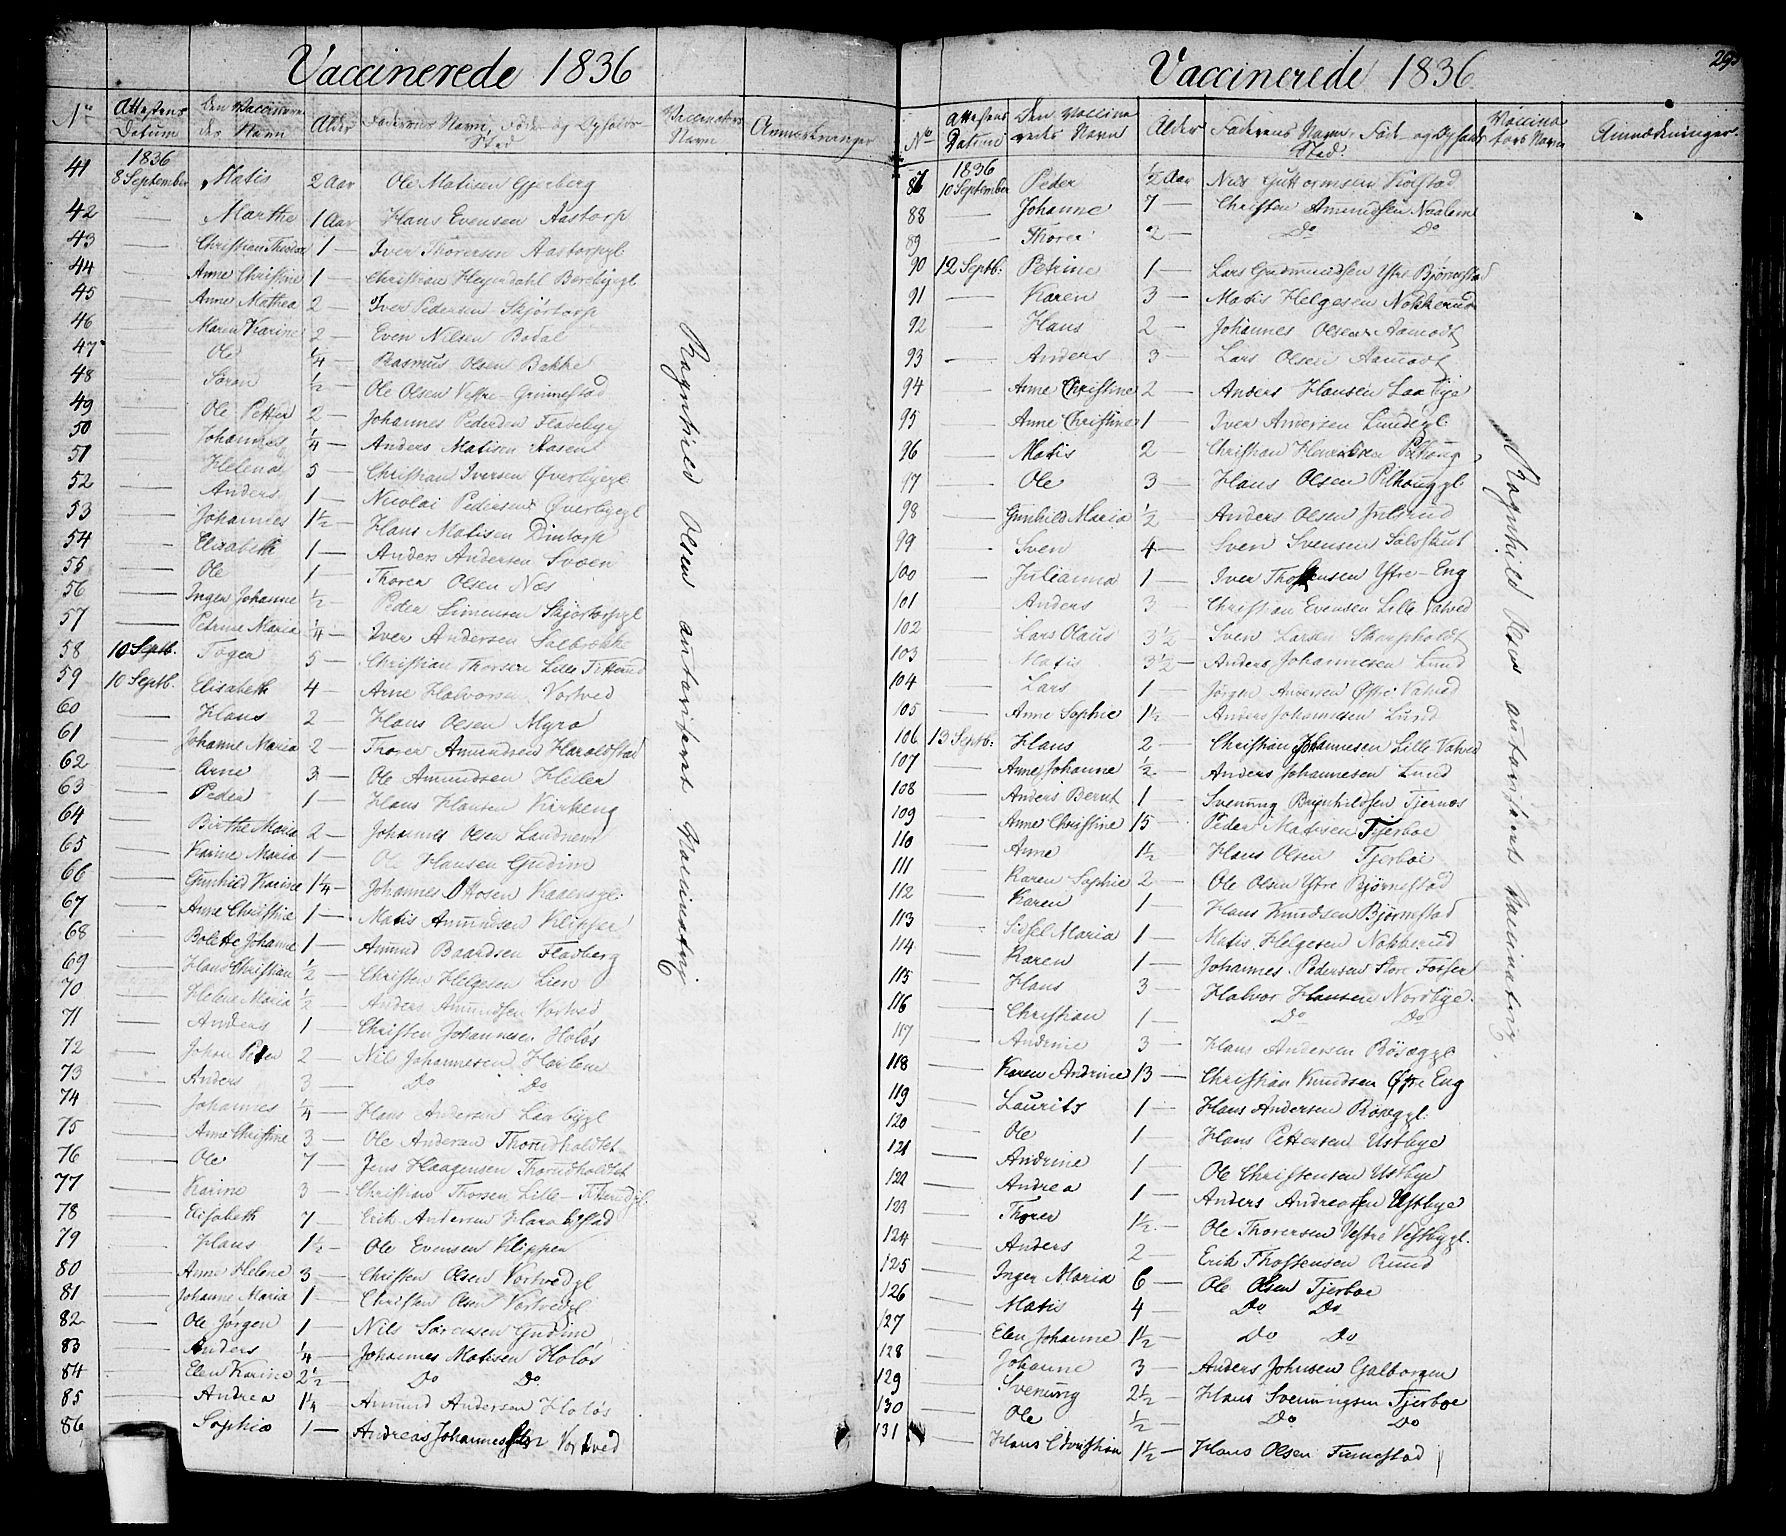 Vaccinerede 1836
No Attestens Datum Den Vaccineredes Navn Alder Faderens Navn, Føde og Opholds Sted Vaccinators Navn Anmærkninger
1836
41 8 September Matis 2 Aar Ole Matisen Gjerberg
42 — Marthe 1 Aar Hans Evensen Aastorp
43 — Christian Thostor 1 — Iver Thorersen Aastorpgl
44 — Anne Christine 1 — Christian Heyerdahl Berebygl
45 — Anne Mathea 2 Iver Pedersen Skjørtorp
46 — Maren Karine 2 — Even Nilsen Bodal
47 — Ole 1/4 Rasmus Olsen Bakke
48 — Søren 1/2 — Ole Olsen Vestre Grinnestad
49 — Ole Petter 2 — Johannes Pedersen Fladebye
50 — Johannes 1/4 — Anders Matisen Aasen
51 — Helena 5 Christian Iversen Øverbyegl
52 — Anders 1 — Nicolai Pedersen Øverbyegl
53 — Johannes 1 1/2 — Hans Matisen Dintorp
54 — Elisabeth 1 — Anders Andersen Svoen
55 — Ole 1 Thorer Olsen Næs
56 — Inger Johanne 1/2 — Peder Simensen Skjørtorpgl
57 — Petrine Maria 1/4 — Iver Andersen Solbrække
58 10 Septb. Togea 5 — Christian Thorsen Lille Titterud
59 10 Septb. Elisabeth 4 — Arne Halvorsen Vortved
60 — Hans 2 — Hans Olsen Myra
61 — Johanne Maria 2 — Thorer Amundsen Haraldstad
62 — Arne 3 — Ole Amundsen Heiler
63 — Peder 1 — Hans Hansen Kirkeng
64 — Birthe Maria 2 — Johannes Olsen Landnem
65 — Karine Maria 1 — Ole Hansen Gudim
66 — Gunhild Karine 1 1/4 — Johannes Ottosen Kaaensgl.
67 — Anne Christine 1 — Matis Amundsen Klipper
68 — Bolette Johanne 1 — Amund Baardsen Fladberg
69 — Hans Christian 1/2 — Christen Helgesen Lien
70 — Helene Maria 1/2 — Anders Amundsen Vortved
71 — Anders 1 Christen Johannesen Holøs
72 — Johan Peter 2 — Nils Johannesen Hoilene
73 — Anders 3 — Do Do
74 — Johannes 1/4 — Hans Andersen Laabygl
75 — Anne Christine 3 — Ole Andersen Thorudholdtet
76 — Ole 7 — Jens Haagensen Thorudholdtet
77 — Karine 3 — Christian Thorsen Lille Titterudgl.
78 — Elisabeth 7 — Erik Andersen Haraldstad
79 — Hans 1 1/2 — Ole Evensen Klippen
80 — Anne Helene 3 — Christen Olsen Vortvedgl
81 — Johanne Maria 1 — Christen Olsen Vortvedgl
82 — Ole Jørgen 1 — Nils Sørensen Gudim
83 — Anders 1/4 — Johannes Matisen Holøs
84 — Elen Karine 2 1/2 — Do Do
85 — Andrea 1 1/4 — Amund Andersen Holøs
86 — Sophie 1 — Andreas Johannessen Vortved
Ragnhild Olsen autoriseret Vaccinatrij
Vaccinerede 1836
293
No Attestens Datum Den Vaccineredes Navn Alder Faderens Navn, Føde og Opholds Sted. Vaccinators Navn Anmærkninger.
1836
87 10 September Peder 1/2 Aar Nils Guttormsen Kiølstad
88 — Johanne 7 — Christen Amundsen Noalem
89 — Thorer 2 — Do Do
90 12 Septb: Petrine 1 — Lars Gudmundsen Ystre Bjørnestad
91 — Karen 3 — Matis Helgesen Nokkerud
92 — Hans 2 — Johannes Olsen Aamodt
93 — Anders 3 — Lars Olsen Aamodt
94 — Anne Christine 2 — Anders Hansen Laabye
95 — Anne Christine 1 — Iver Andersen Lundegl.
96 — Matis 2 Christian Henriksen Pilhoug
97 — Ole 3 — Hans Olsen Pilhouggl
98 — Gunhild Maria 1/2 — Anders Olsen Julsrud
99 — Sven 4 — Sven Svensen Solsskut
100 — Julianna 1 — Iver Thostensen Ystre-Eng
101 — Anders 3 — Christian Evensen Lille Vatved
102 — Lars Olaus 3 1/2 — Sven Larsen Skarpholdt
103 — Matis 3 1/2 — Anders Johannesen Lund
104 — Lars 1 — Jørgen Andersen Østre Vatved
105 — Anne Sophie 1 1/2 — Anders Johannesen Lund
106 13 Septb: Hans 2 — Christian Johannesen Lille Vatved
107 — Anne Johanne 1/2 — Anders Johannesen Lund
108 — Anders Bernt 1 — Svenung Brynhildsen Tjernæs
109 — Anne Christine 15 — Peder Matisen Tjerboe
110 — Anne 1 1/2 — Hans Olsen Tjerboe
111 — Karen Sophie 2 — Ole Olsen Ystre Bjørnestad
112 — Karen 1 — Hans Knudsen Bjørnestad
113 — Sidsel Maria 1 — Matis Helgesen Nokkerud
114 — Karen 1 — Johannes Pedersen Store Fosser
115 — Hans 3 — Halvor Hansen Nordbye.
116 — Christian 1 — Do Do
117 — Andrine 3 — Hans Andersen Røsæggl
118 — Karen Andrine 13 — Christian Knudsen Østre Eng
119 — Laurits 1 — Hans Andersen Røseggl:
120 — Ole 1 — Hans Pettersen Ustbye
121 — Andrine 1 — Ole Christensen Ustbye
122 — Andrea 1 — Anders Andreassen Ustbye
123 — Thorer 1 1/2 — Ole Thorersen Vestre Vestbygl.
124 — Anders 2 — Erik Thostensen Ruud
125 — Inger Maria 6 — Ole Olsen Tjerboe
126 — Matis 4 — Do Do
127 — Elen Johanne 1 1/2 — Do Do
128 — Johanne 3 — Anders Johnsen Galborgen
129 — Svenung 2 1/2 — Hans Svenningsen Tjerboe
130 — Ole 1/2 — Do Do
131 — Hans Christian 1 1/2 — Hans Olsen Finnestad
Ragnhild Olsen autoriseret Vaccinatrij.